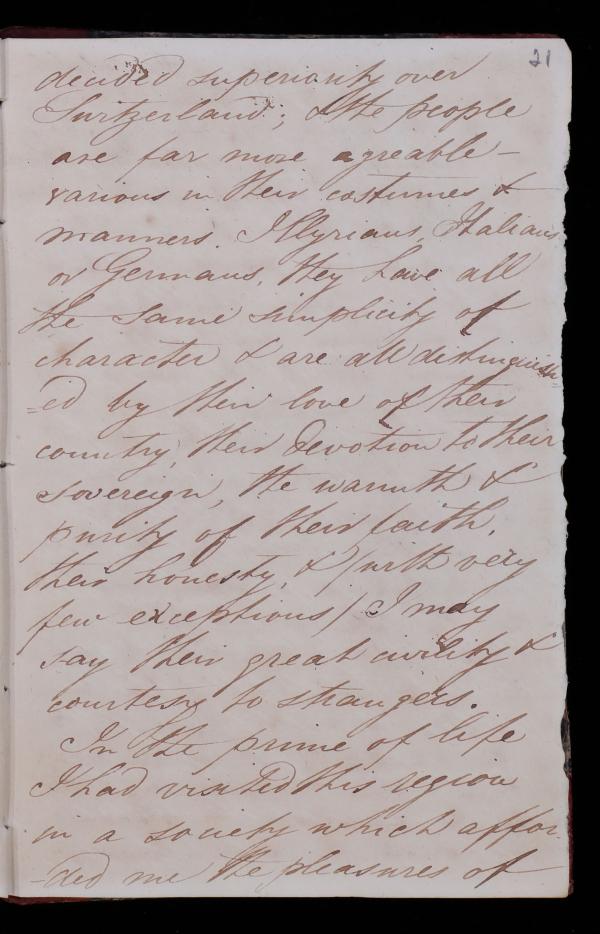 21
decided superiority over
Switzerland; & the people
are far more agreable -
various in their costumes &
manners. Illyrians, Italians,
or Germans, they have all
the same simplicity of
character & are all distinguish=
=ed by their love of their
country, their devotion to their
sovereign, the warmth &
purity of their faith,
their honesty, & (with very
few exceptions) I may
say their great civility &
courtesy to strangers.
In the prime of life
I had visited this region
in a society which affor-
-ded me the pleasures of